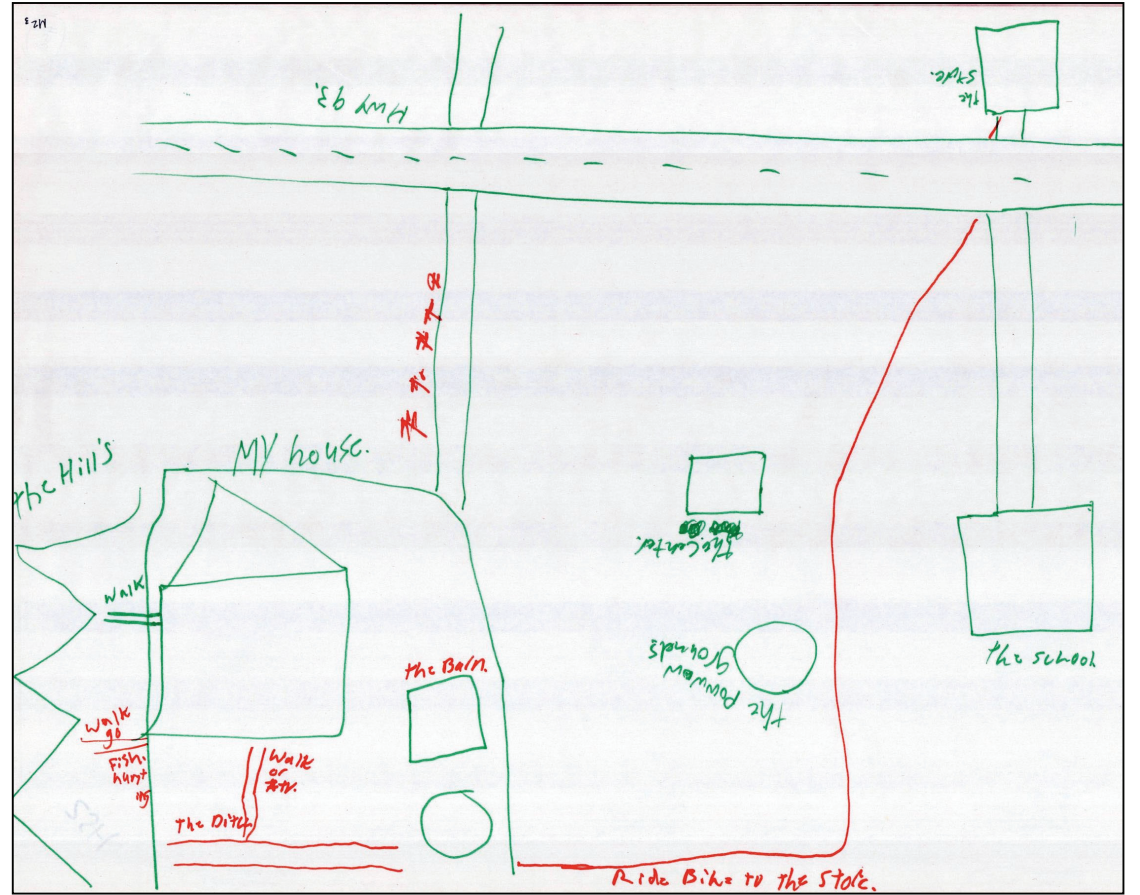 MZ 3
Hwy 93.
the
store.
the Hill's
MY house.
walk
the center.
the
powwow
grounds
the school
the Barn.
walk
go
Fish
hunt
ing
walk
or
the Ditch
Ride Bike to the Store.